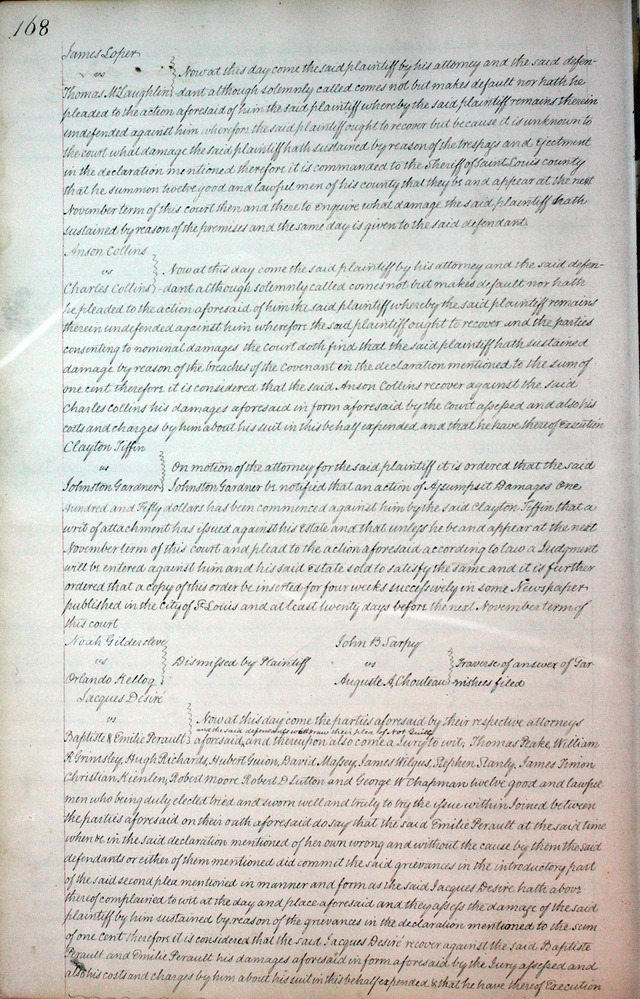 168
James Loper
vs
Thomas McLaughlin
Now at this day come the said plaintiff by his attorney and the said defen-
-dant although solemnly called comes not but makes default nor hath he
pleaded to the action aforesaid of him the said plaintiff whereby the said plaintiff remains therein
undefended against him wherefore the said plaintiff ought to recover but because it is unknown to
the court what damage the said plaintiff hath sustained by reason of the trespass and Ejectment
in the declaration mentioned therefore it is commanded to the Sheriff of Saint Louis county
that he summon twelve good and lawful men of his county that they be and appear at the next
November term of this court then and there to enquire what damage the said plaintiff hath
sustained by reason of the premises and the same day is given to the said defendant
Anson Collins
vs
Charles Collins
Now at this day come the said plaintiff by his attorney and the said defen-
-dant although solemnly called comes not but makes default nor hath
he pleaded to the action aforesaid of him the said plaintiff whereby the said plaintiff remains
therein undefended against him wherefore the said plaintiff ought to recover and the parties
consenting to nominal damages the court doth find that the said plaintiff hath sustained
damage by reason of the breaches of the Covenant in the declaration mentioned to the sum of
one cent therefore it is considered that the said Anson Collins recover against the said
Charles Collins his damages aforesaid in form aforesaid by the Court assessed and also his
costs and charges by him about his suit in this behalf expended and that he have thereof Execution
Clayton Tiffin
vs
Johnston Gardner
On motion of the attorney for the said plaintiff it is ordered that the said
Johnston Gardner be notified that an action of Assumpsit Damages One
hundred and Fifty dollars has been commenced against him by the said Clayton Tiffin that a
writ of attachment has issued against his Estate and that unless he be and appear at the next
November term of this court and plead to the action aforesaid according to law a Judgment
will be entered against him and his said Estate sold to satisfy the same and it is further
ordered that a copy of this order be inserted for four weeks successively in some Newspaper
published in the City of St Louis and at least twenty days before the next November term of
this court
Noah Gildersleve
vs
Orlando Kellog
Dismissed by Plaintiff
John B Sarpy
vs
Auguste A Chouteau
Traverse of answer of Gar
nishees filed
Jacques Desiré
vs
Baptiste & Emilie Perault
Now at this day come the parties aforesaid by their respective attorneys
and the said defendants withdraw their plea of Not Guilty
aforesaid, and thereupon also come a Jury to wit, Thomas Peake, William
R Grimsley, Hugh Richards, Hubert Guion, David Massey, James Wilgus, Stephen Stanly, James Timon
Christian Kienlen, Robert Moore Robert D Sutton and George W Chapman twelve good and lawful
men who being duly elected tried and sworn well and truly to try the issue within Joined between
the parties aforesaid on their oath aforesaid do say that the said Emilie Perault at the said time
when &c in the said declaration mentioned of her own wrong and without the cause by them the said
defendants or either of them mentioned did commit the said grievances in the introductory part
of the said second plea mentioned in manner and form as the said Jacques Desire hath above
thereof complained to wit at the day and place aforesaid and they assess the damage of the said
plaintiff by him sustained by reason of the grievances in the declaration mentioned to the sum
of one cent therefore it is considered that the said Jacques Desiré recover against the said Baptiste
Perault and Emilie Perault his damages aforesaid in form aforesaid by the Jury assessed and
also his costs and charges by him about his suit in this behalf expended & that he have thereof Execution